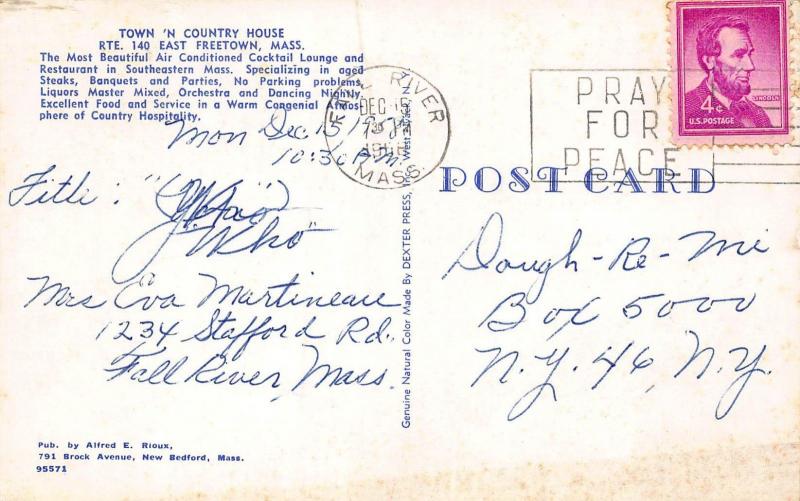 TOWN 'N COUNTRY HOUSE
RTE. 140 EAST FREETOWN, MASS.
The Most Beautiful Air Conditioned Cocktail Lounge and
Restaurant in Southeastern Mass. Specializing in aged
Steaks, Banquets and Parties, No Parking problems,
Liquors Master Mixed, Orchestra and Dancing Nightly.
Excellent Food and Service in a Warm Congenial Atmos-
phere of Country Hospitality.
Mon Dec. 15
10:30 P.M.
Title: "
"Who"
Mrs Eva Martineau
1234 Stafford Rd.
Fall River, Mass.
Pub. by Alfred E. Rioux,
791 Brock Avenue, New Bedford, Mass.
95571
FALL RIVER
DEC 15
MASS.
Genuine Natural Color Made By DEXTER PRESS, West Nyack,
PRAY
FOR
PEACE
4¢
LINCOLN
U.S. POSTAGE
POST CARD
Dough-Re-Mi
Box 5000
N.Y. 46, N.Y.